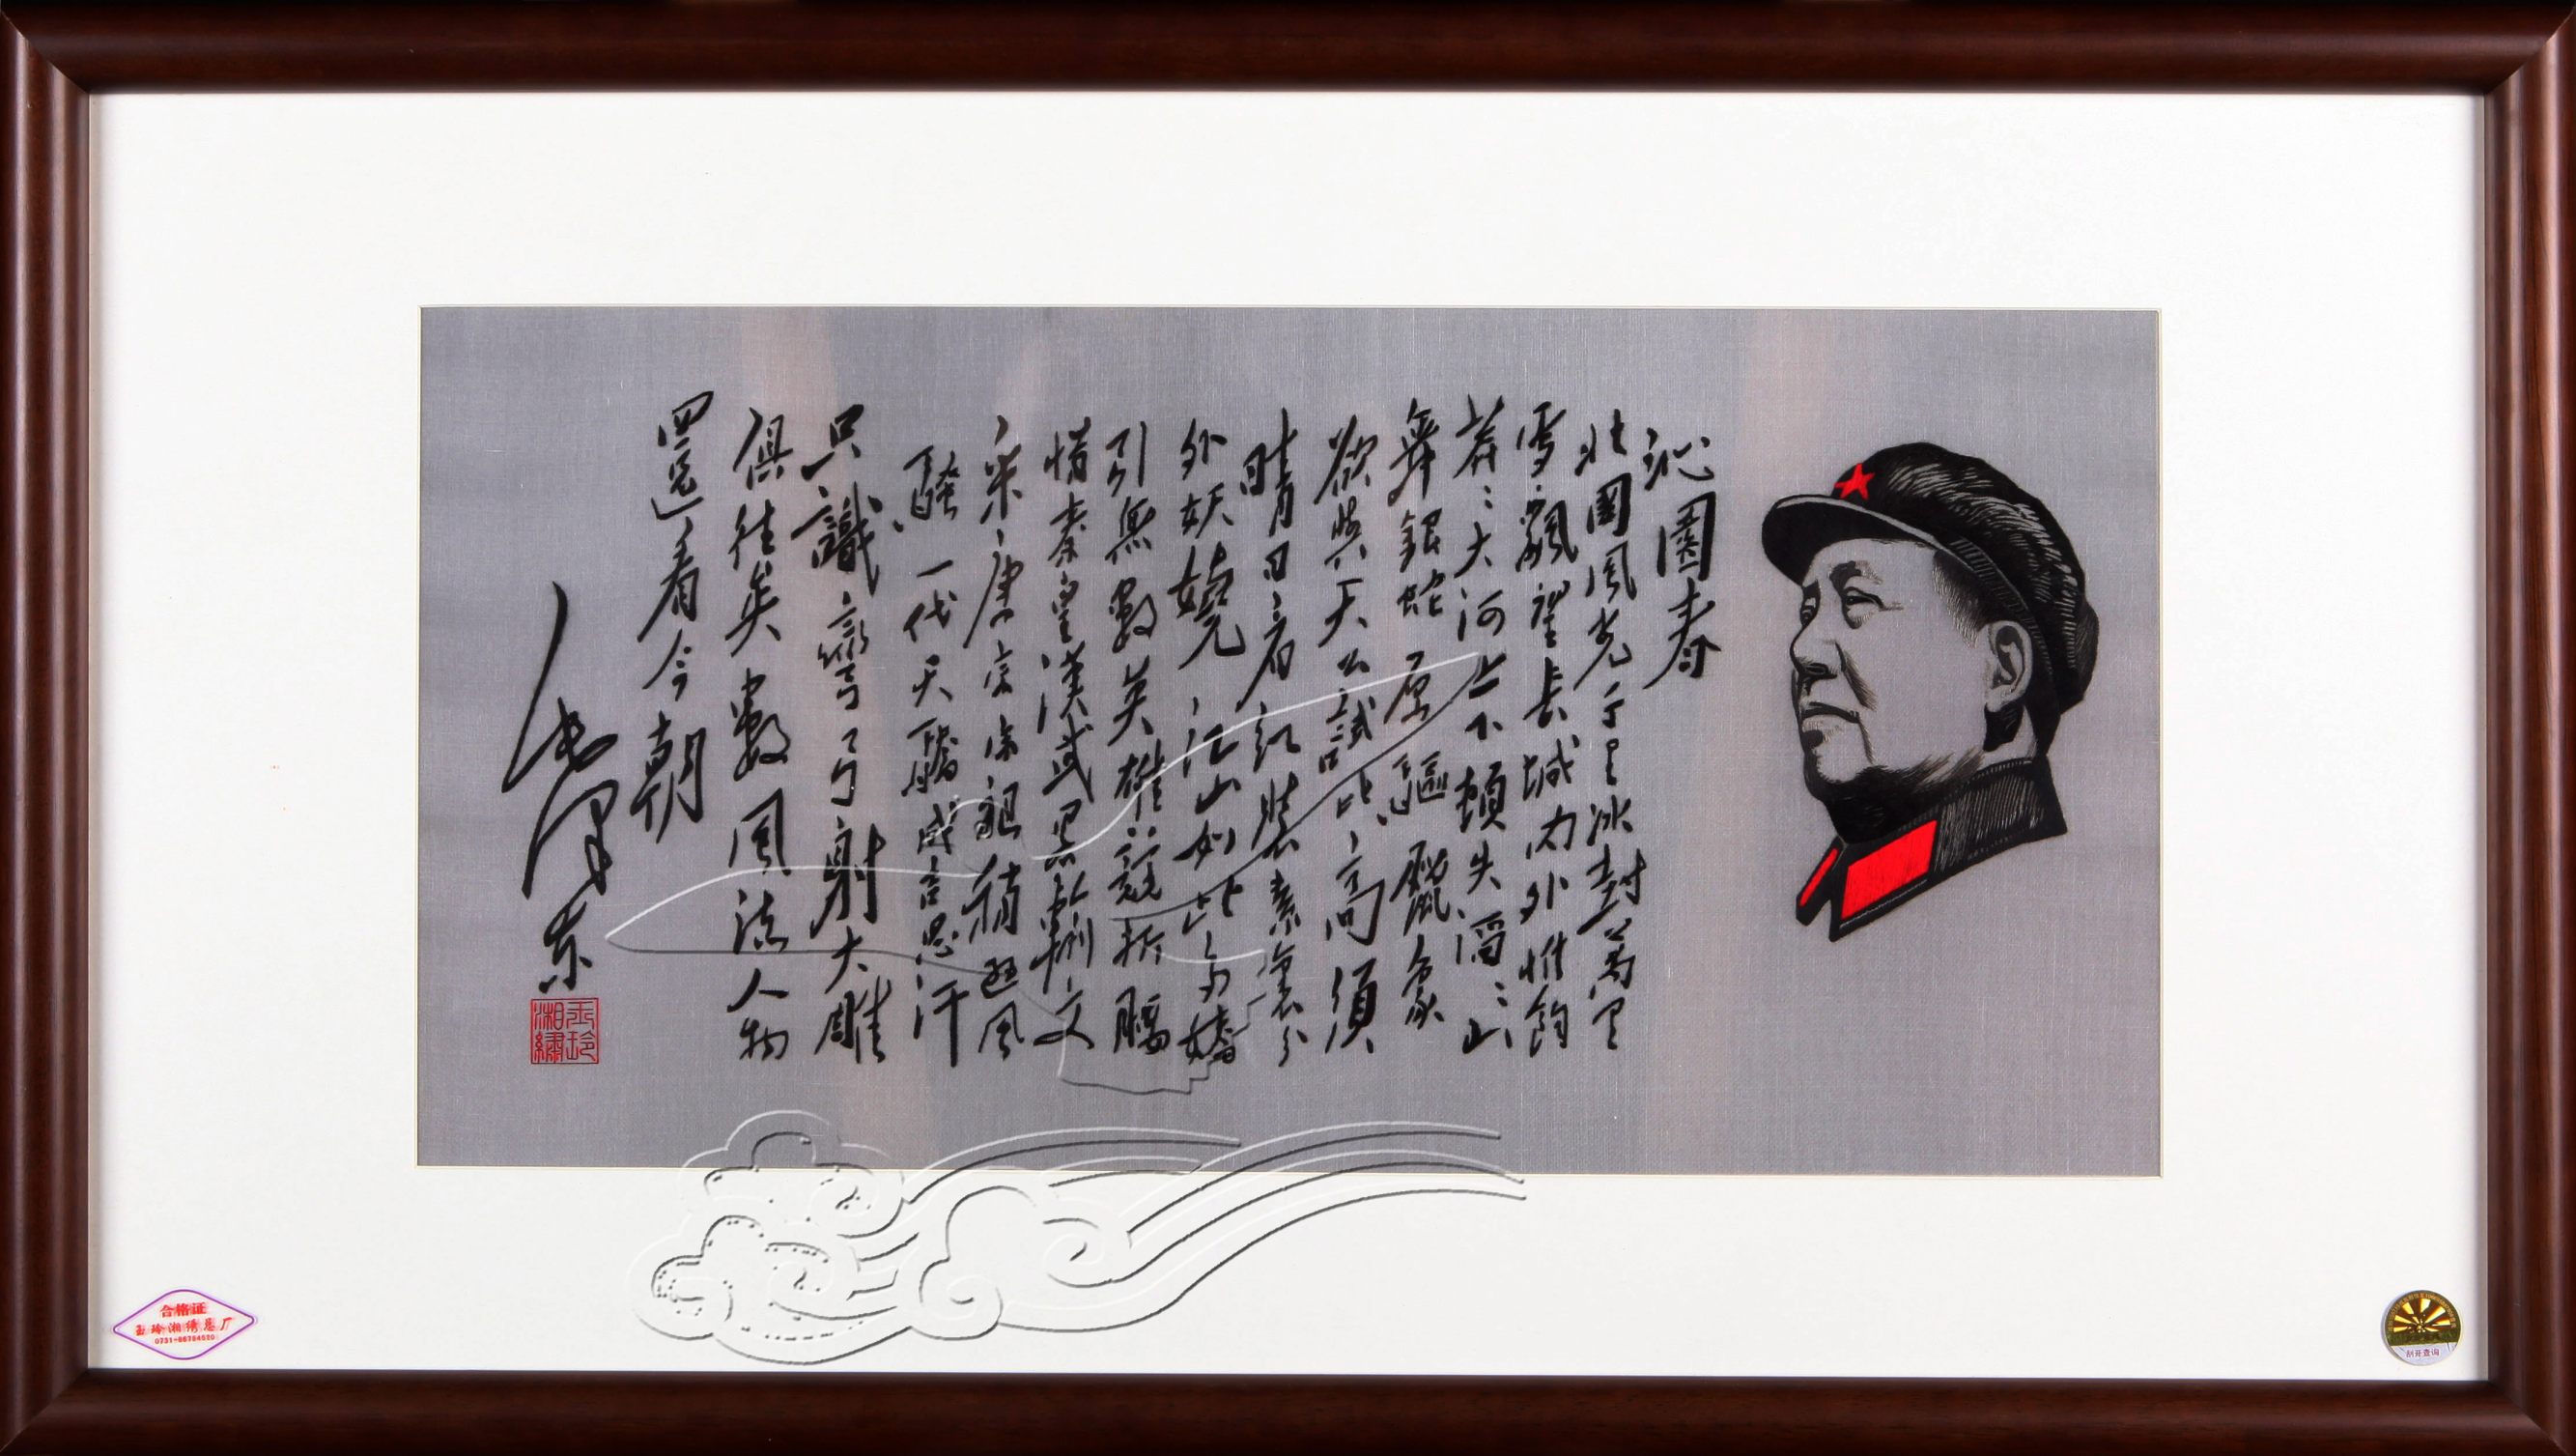 沁園春
北國風光千里冰封萬里
雪飄望長城內外惟餘
莽〻大河上下頓失滔〻山
舞銀蛇原驅臘象
欲與天公試比高須
晴日看紅裝素裹分
外妖嬈江山如此多嬌
引無數英雄競折腰
惜秦皇漢武略輸文
采唐宗宋祖稍遜風
騷一代天驕成吉思汗
只識彎弓射大雕
俱往矣數風流人物
還看今朝
毛澤東
玉玲
湘繡
合格证
玉玲湘绣总厂
刮开查询